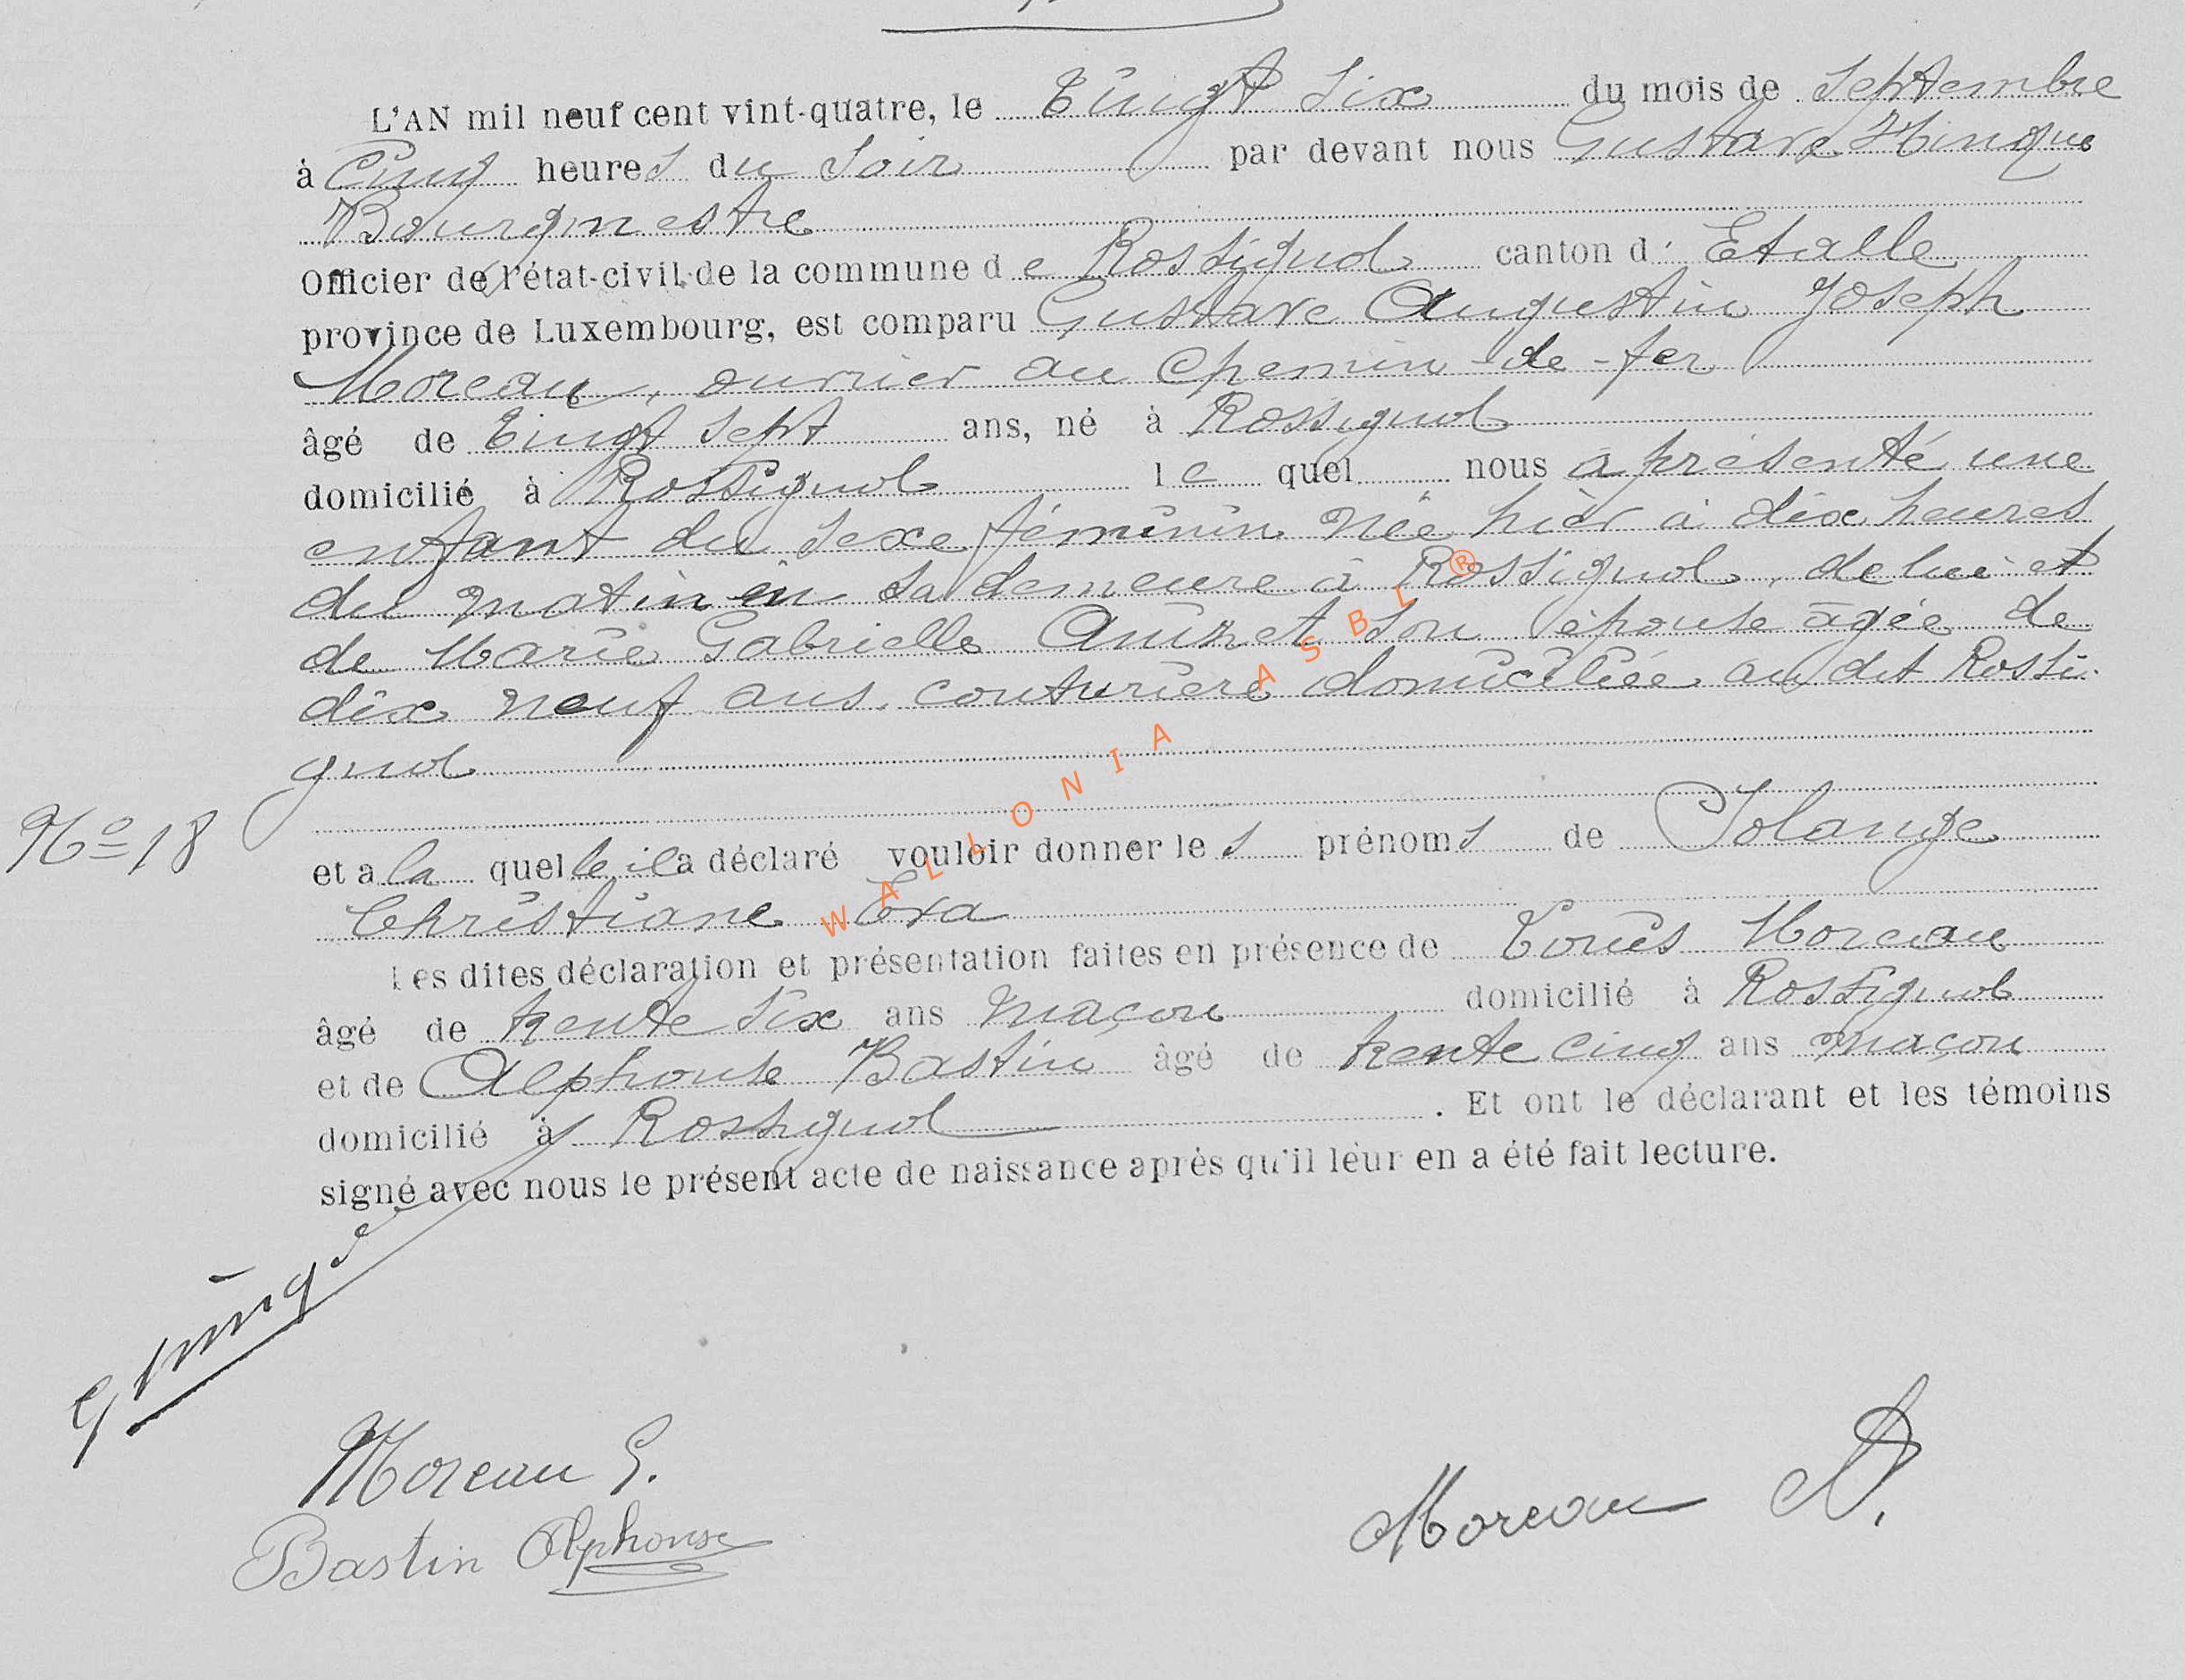 L'AN mil neuf cent vint-quatre, le Vingt six du mois de Septembre
à Cinq heures du Soir par devant nous Gustave Hinque
Bourgmestre
Officier de l'état-civil de la commune de Rossignol canton d' Etalle
province de Luxembourg, est comparu Gustave Augustin Joseph
Moreau, ouvrier au chemin-de-fer
âgé de Vingt sept ans, né à Rossignol
domicilié à Rossignol le quel nous a présenté une
enfant du sexe féminin née hier à dix heures
du matin en sa demeure à Rossignol, de lui et
de Marie Gabrielle son épouse âgée de
dix neuf ans, couturière domiciliée au dit Rossi-
gnol
No 18
et a la quelle il a déclaré vouloir donner les prénoms de Solange
Christiane Eva
Les dites déclaration et présentation faites en présence de Moreau
âgé de trente six ans maçon domicilié à Rossignol
et de Alphonse Bastin âgé de trente cinq ans maçon
domicilié à Rossignol . Et ont le déclarant et les témoins
signé avec nous le présent acte de naissance après qu'il leur en a été fait lecture.
Moreau G.
Moreau
Bastin Alphonse
WALLONIA ASBL ®